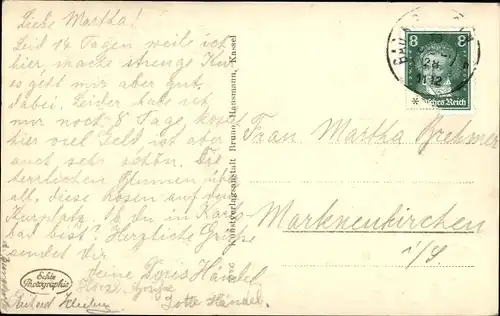 Liebe Martha!
Seid 14 Tagen weile ich
hier, mache strenge Kur
es geht mir aber gut
dabei. Leider habe ich
nur noch 8 Tage, kostet
hier viel Geld ist aber
auch sehr schön. Die
herrlichen Blumen über-
all, diese Rosen auf dem
Kurplatz. du in
bad bist? Herzliche Grüße
sendet dir
Deine Doris Händel
Herzl. Grüße
Lotte Händel.
Echte
Photographie
Kunstverlagsanstalt Bruno Hansmann, Kassel
8 8
Deutsches Reich
Frau Martha Brehmer
Markneukirchen
i/S.